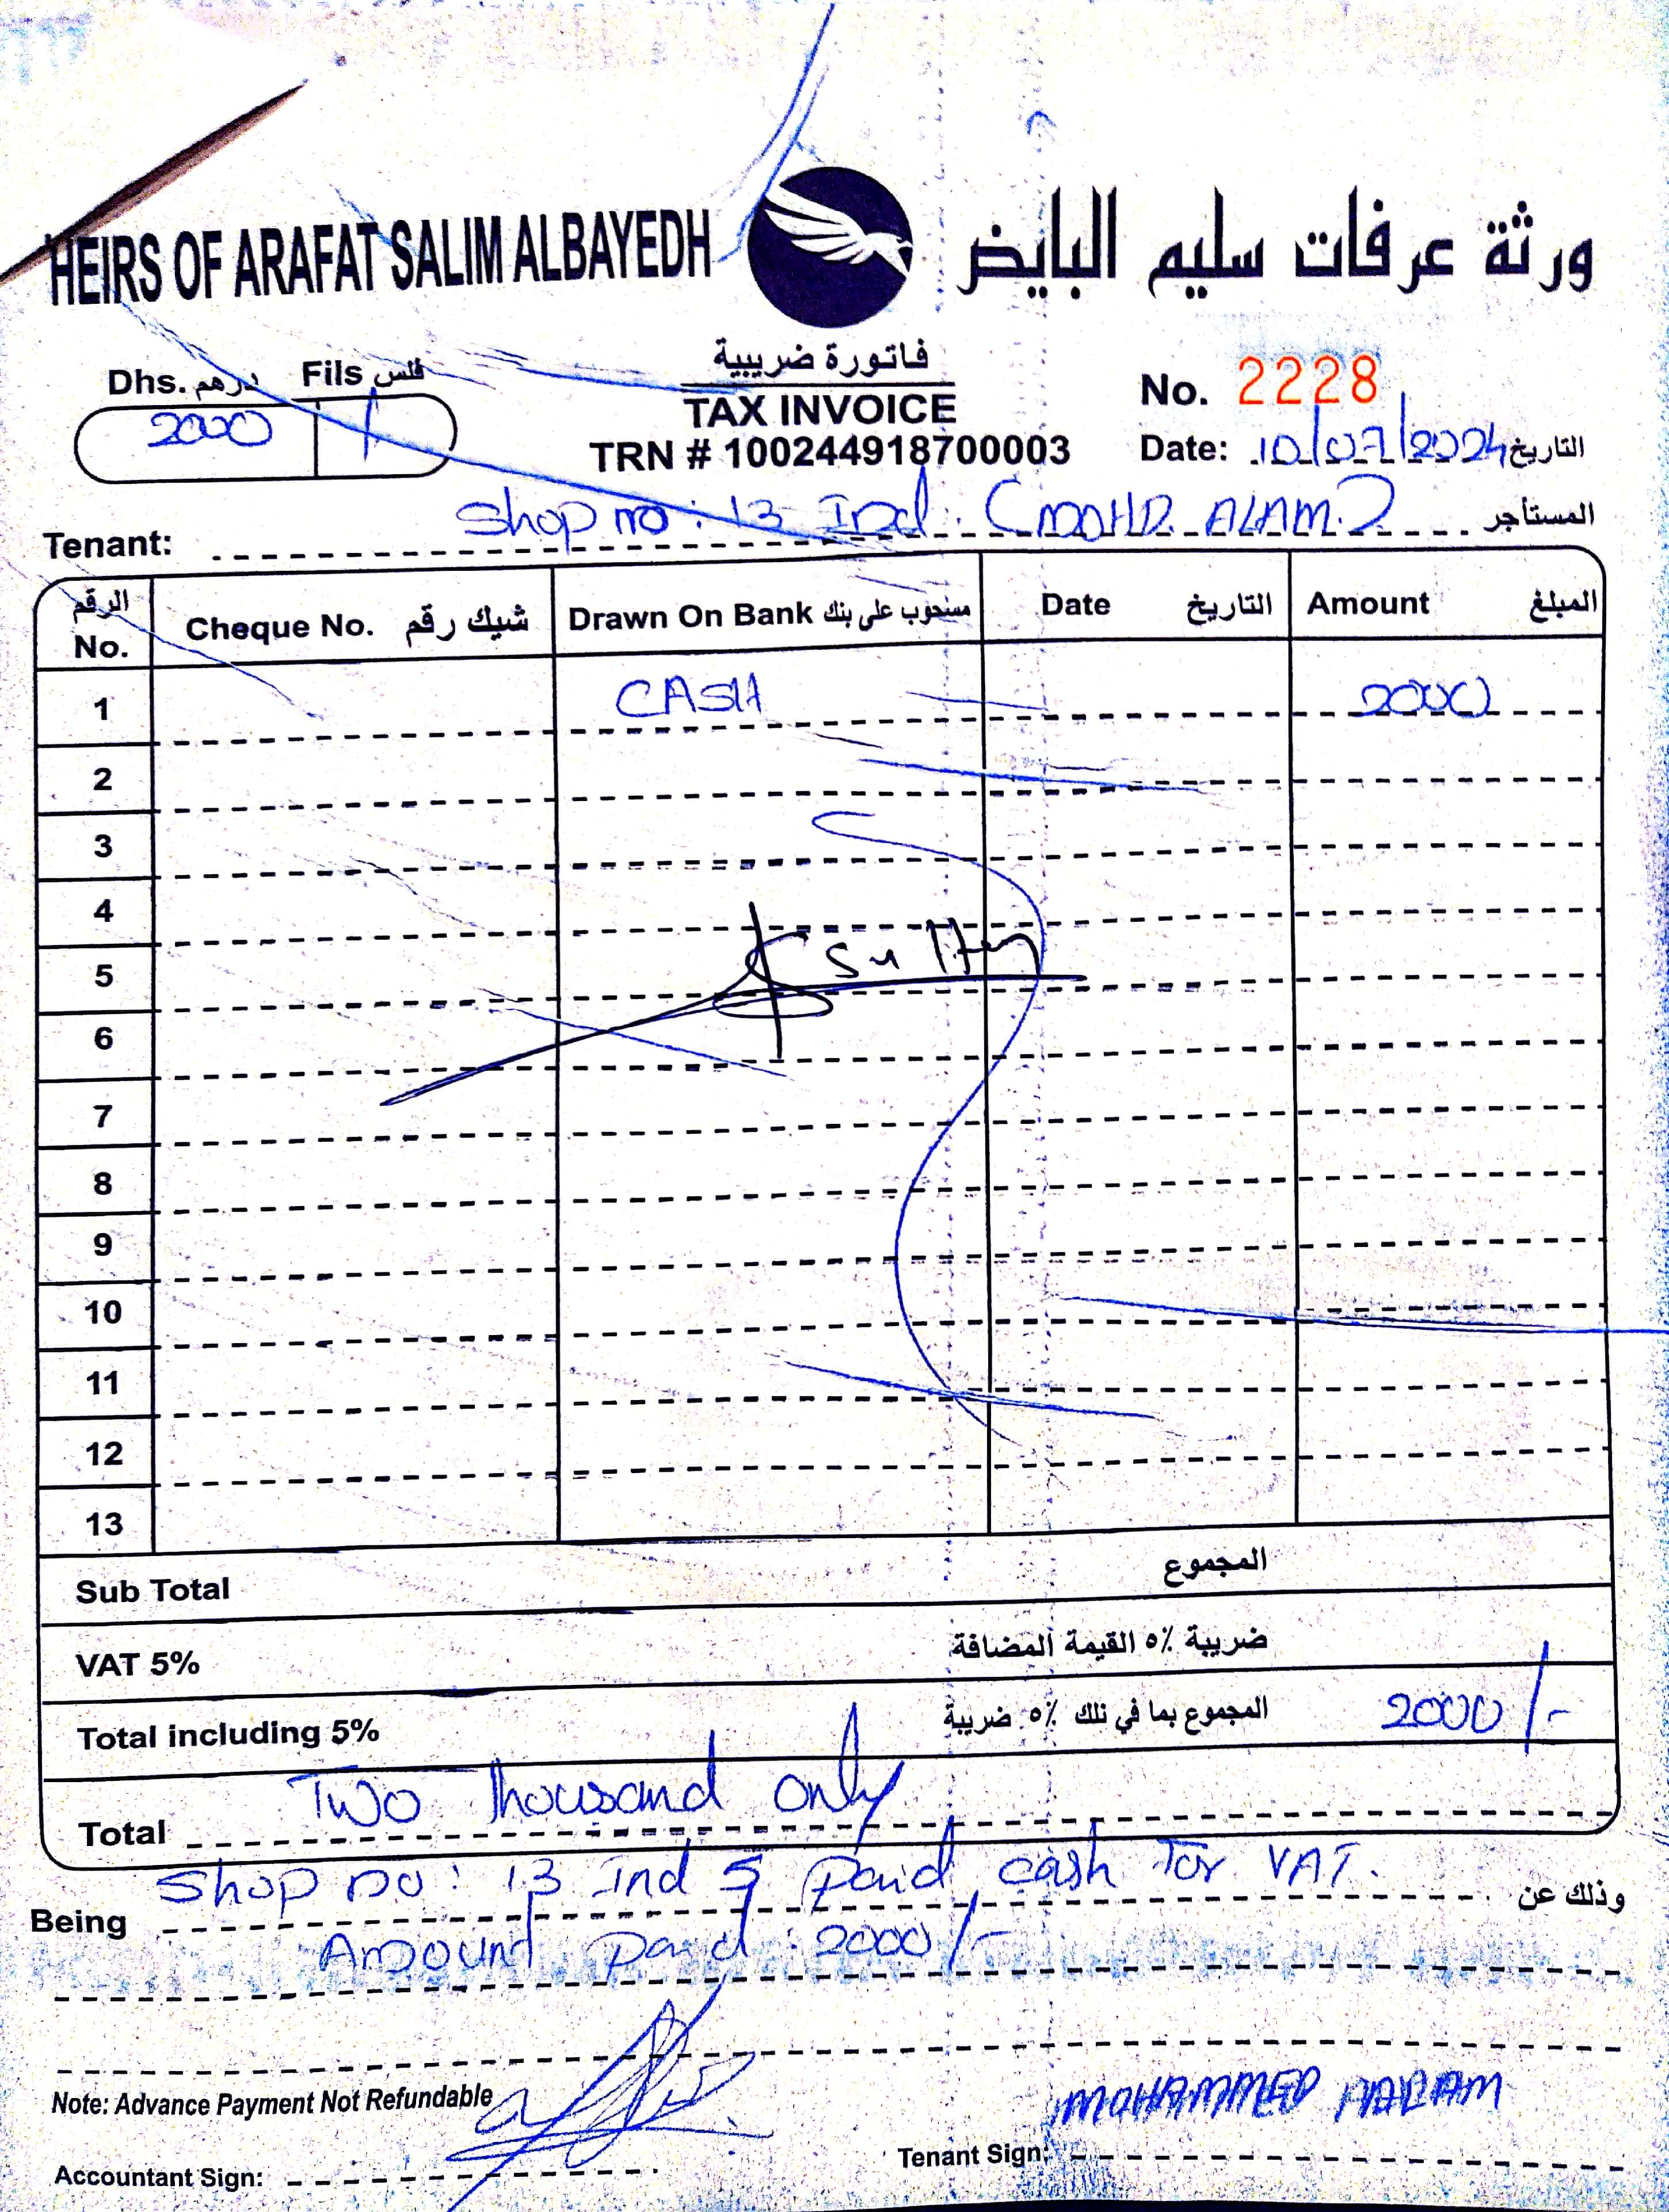 HEIRS OF ARAFAT SALIM ALBAYEDH ورثة عرفات سليم البايض
Dhs. درهم Fils فلس
2000 /
فاتورة ضريبية
TAX INVOICE
TRN # 100244918700003
No. 2228
Date: 10/07/2024 التاريخ
Tenant: Shop no: 13 Ind. (MOHD. ALAM) المستأجر
الرقم No. Cheque No. شيك رقم Drawn On Bank مسحوب على بنك Date التاريخ Amount المبلغ
1 CASH 2000
2
3
4
5
6
7
8
9
10
11
12
13
Sub Total المجموع
VAT 5% ضريبة ٥٪ القيمة المضافة
Total including 5% المجموع بما في تلك ٥٪ ضريبة 2000/-
Total Two thousand only
Being Shop no: 13 Ind 5 paid cash for VAT. وذلك عن
Amount paid: 2000/-
Note: Advance Payment Not Refundable
MOHAMMED
Accountant Sign: Tenant Sign: